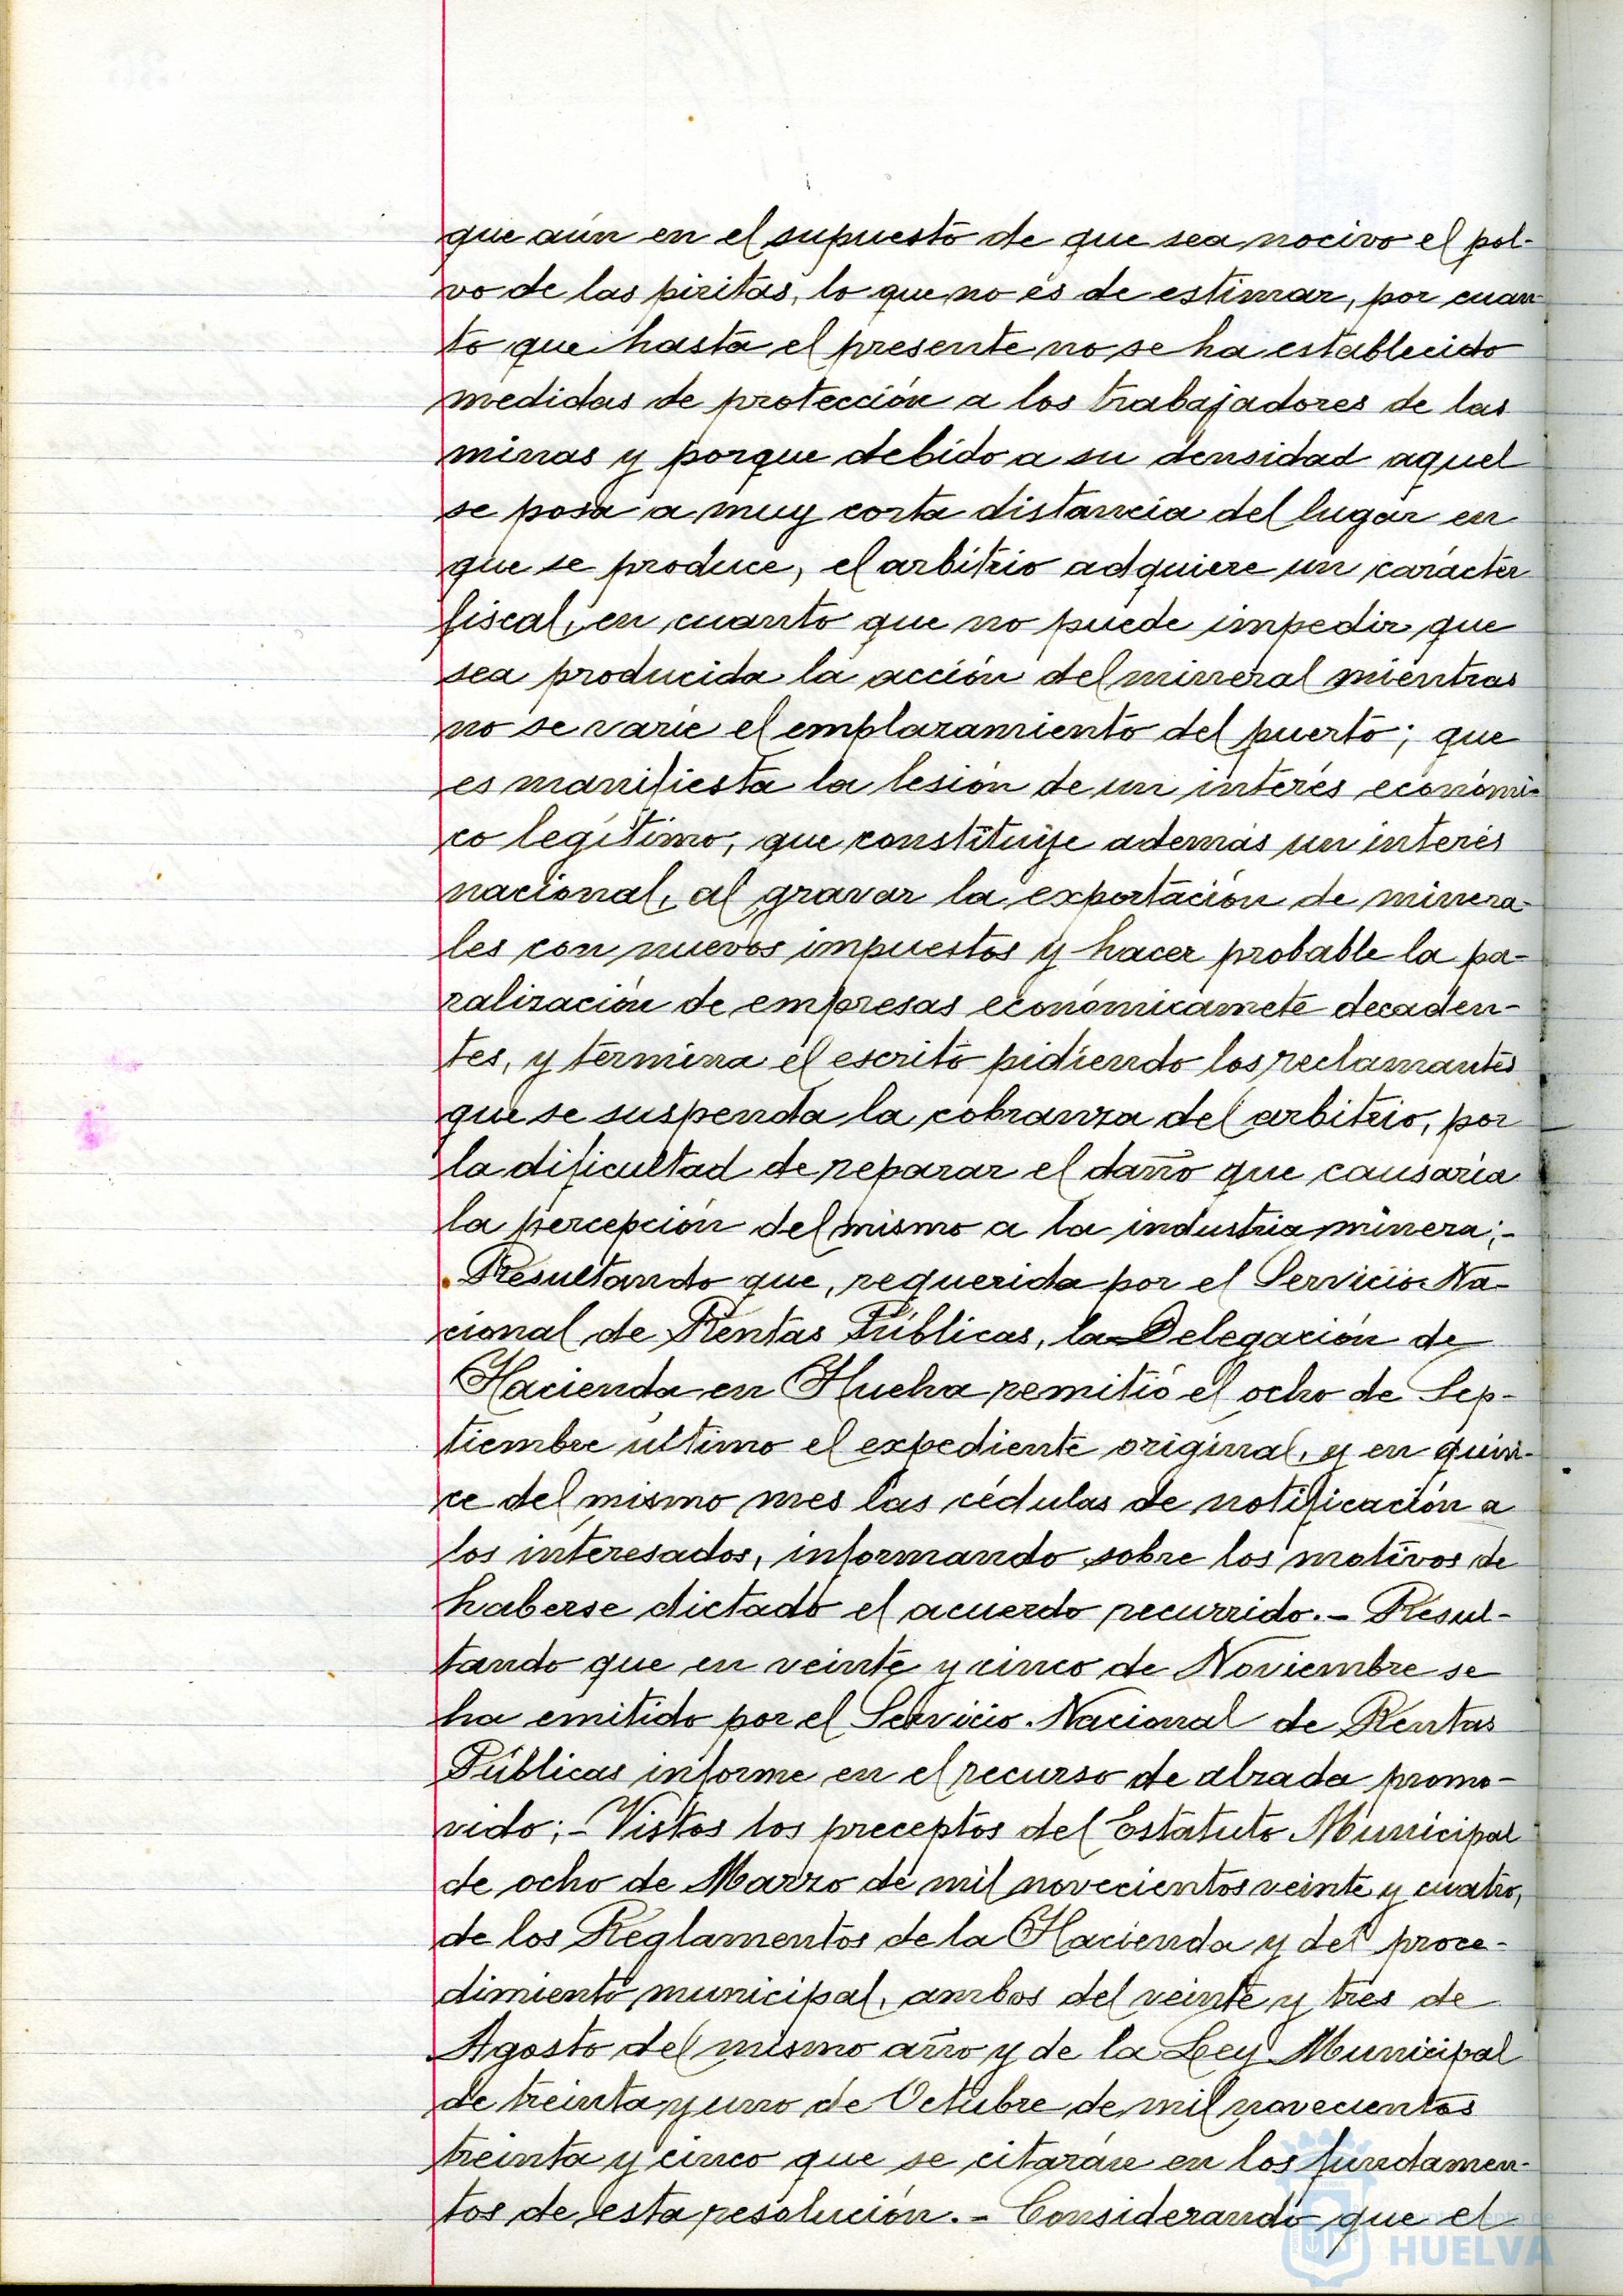 que aún en el supuesto de que sea nocivo el pol-
vo de las piritas, lo que no és de estimar, por cuan-
to que hasta el presente no se ha establecido
medidas de protección a los trabajadores de las
minas y porque debido a su densidad aquel
se posa a muy corta distancia del lugar en
que se produce, el arbitrio adquiere un carácter
fiscal, en cuanto que no puede impedir que
sea producida la acción del mineral mientras
no se varíe el emplazamiento del puerto; que
es manifiesta la lesión de un interés económi-
co legítimo, que constituye además un interés
nacional, al gravar la exportación de minera-
les con nuevos impuestos y hacer probable la pa-
ralización de empresas económicamete decaden-
tes, y termina el escrito pidiendo los reclamantes
que se suspenda la cobranza del arbitrio, por
la dificultad de reparar el daño que causaría
la percepción del mismo a la industria minera;-
Resultando que, requerida por el Servicio Na-
cional de Rentas Públicas, la Delegación de
Hacienda en Huelva remitió el ocho de Sep-
tiembre último el expediente original, y en quin-
ce del mismo mes las cédulas de notificación a
los interesados, informando sobre los motivos de
haberse dictado el acuerdo recurrido.- Resul-
tando que en veinte y cinco de Noviembre se
ha emitido por el Servicio Nacional de Rentas
Públicas informe en el recurso de alzada promo-
vido;- Vistos los preceptos del Estatuto Municipal
de ocho de Marzo de mil novecientos veinte y cuatro,
de los Reglamentos de la Hacienda y del proce-
dimiento municipal, ambos del veinte y tres de
Agosto del mismo año y de la Ley Municipal
de treinta y uno de Octubre de mil novecientos
treinta y cinco que se citarán en los fundamen-
tos de esta resolución.- Considerando que el
HUELVA